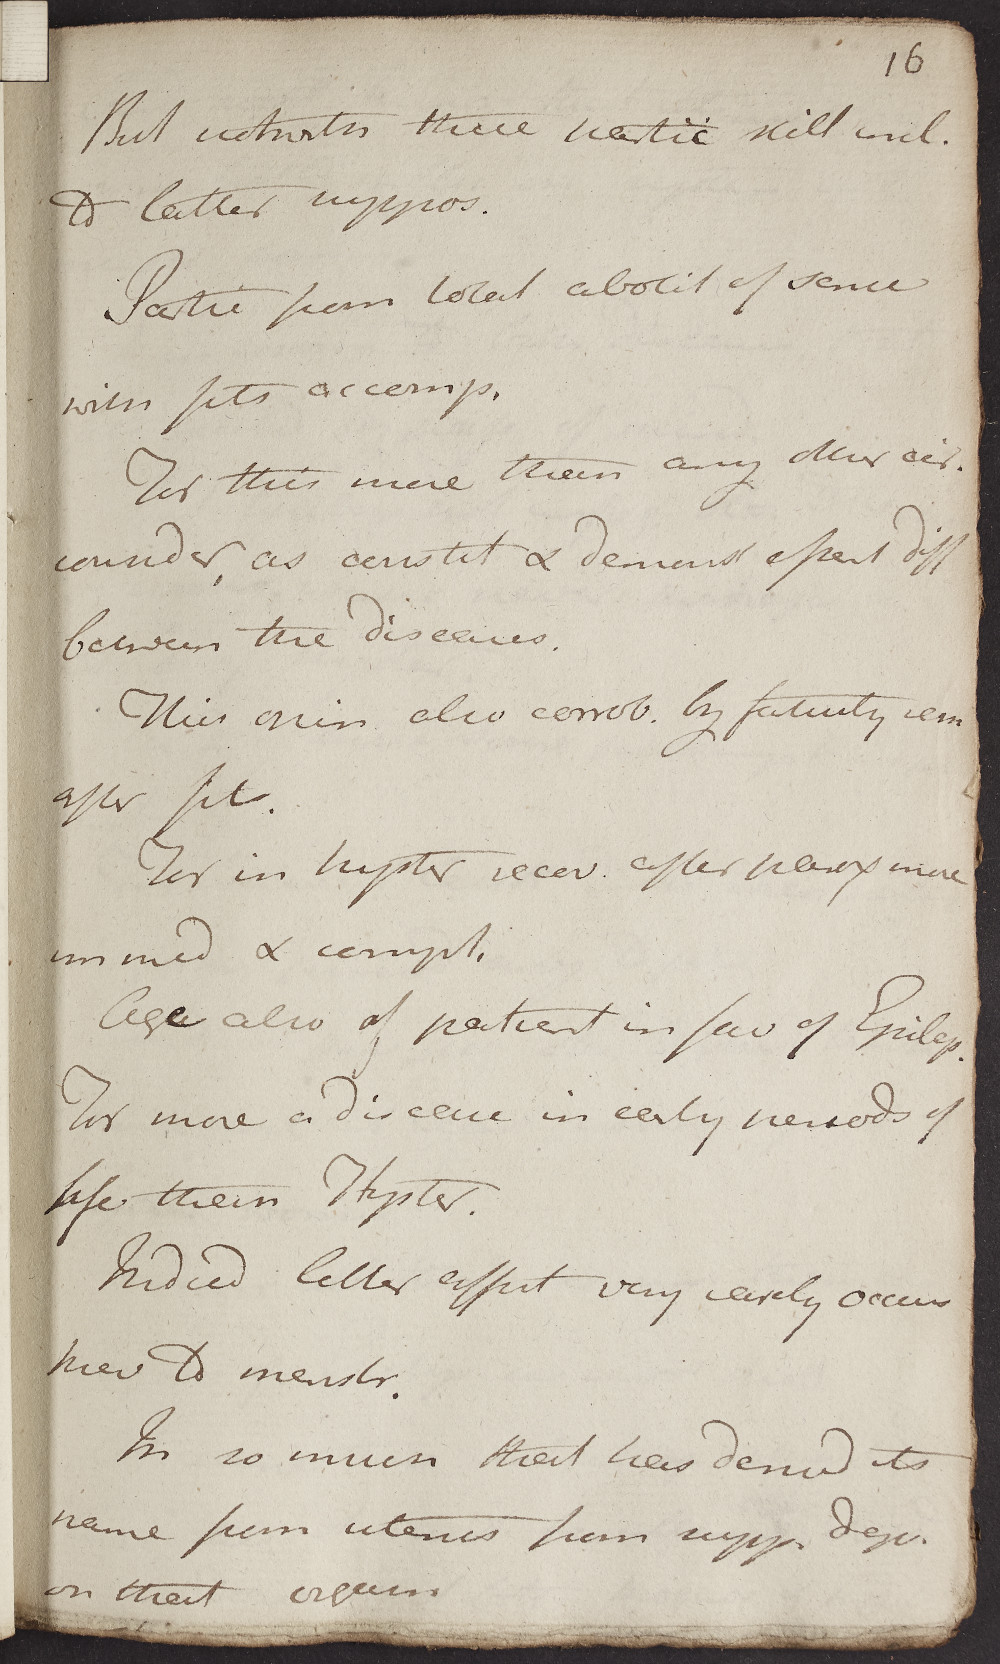 16
But notwith these partic still incl.
to latter suppos.
Partic from total abolit of sense
with fits accomp.
For this more than any other cir.
consider, as constit & demonst essent diff
between the diseases.
This opin also corrob. by fatuity rem
after fit.
For in hyster recov. after parox more
immed & compl.
Age also of patient in fav of Epilep.
For more a disease in early periods of
life than Hyster.
Indeed latter affect very rarely occurs
prev to menstr.
In so much that has derived its
name from uterus from supp. depe.
on that organ